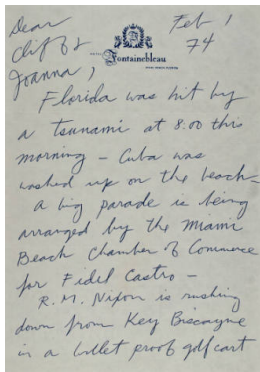 Dear
Cliff &
Joanna,
Feb 1
74
HOTEL
Fontainebleau
MIAMI BEACH, FLORIDA
Florida was hit by
a tsunami at 8.00 this
morning – Cuba was
washed up on the beach –
A big parade is being
arranged by the Miami
Beach Chamber of Commerce
for Fidel Castro –
R. M. Nixon is rushing
down from Key Biscayne
in a bullet proof golf cart